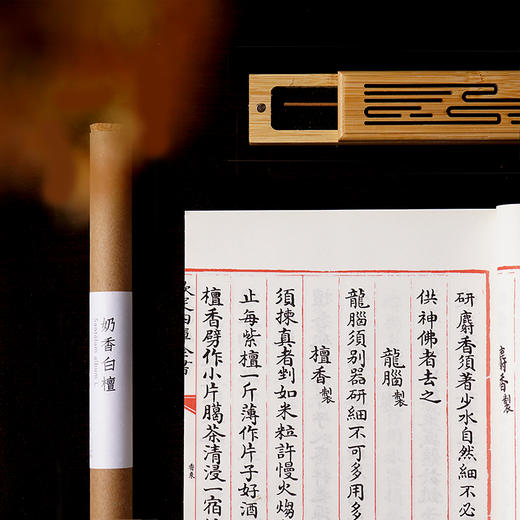 研麝香須著少水自然細不必
供神佛者去之
龍腦製
龍腦須別器研細不可多用多
檀香製
須揀真者剉如米粒許慢火煼
止每紫檀一斤薄作片子好酒
檀香劈作小片臈茶清浸一宿
欽定四庫全書
奶香白檀
Santalum album L.